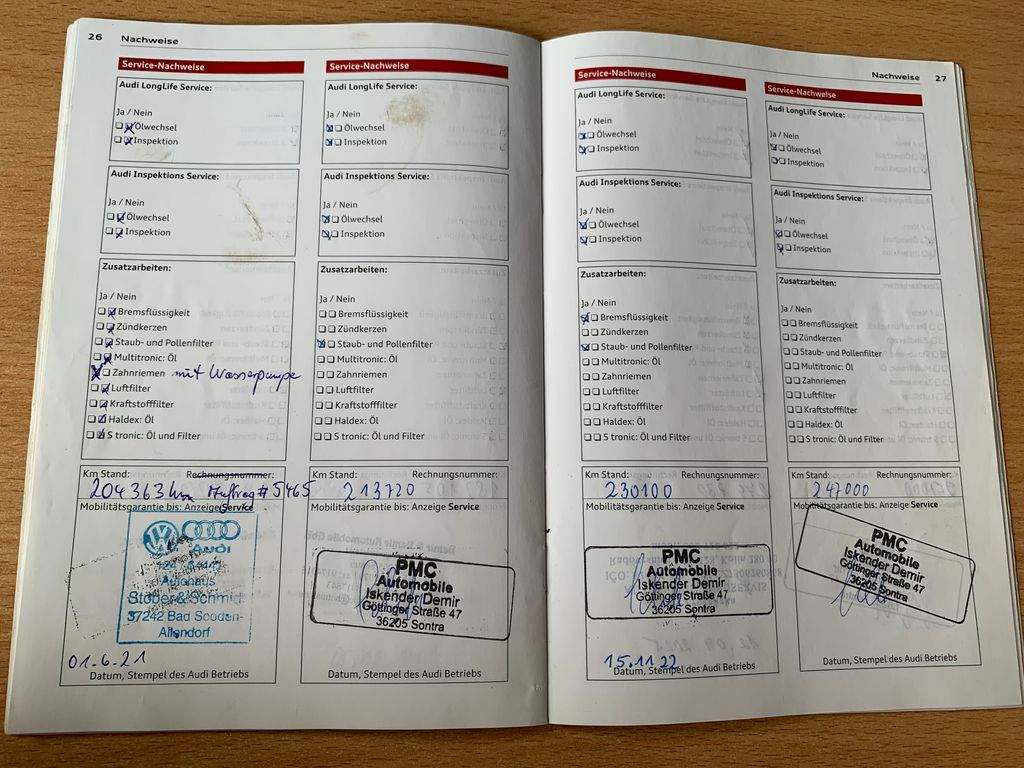 26 Nachweise
Service-Nachweise
Audi LongLife Service:
Ja / Nein
Ölwechsel
Inspektion
Audi Inspektions Service:
Ja / Nein
Ölwechsel
Inspektion
Zusatzarbeiten:
Ja / Nein
Bremsflüssigkeit
Zündkerzen
Staub- und Pollenfilter
Multitronic: Öl
Zahnriemen mit Wasserpumpe
Luftfilter
Kraftstofffilter
Haldex: Öl
S tronic: Öl und Filter
Km Stand: Rechnungsnummer:
204363 km Auftrag # 5465
Mobilitätsgarantie bis: Anzeige Service
Audi
Autohaus
Stöber & Schmid
37242 Bad Sooden-
Allendorf
01.6.21
Datum, Stempel des Audi Betriebs
Service-Nachweise
Audi LongLife Service:
Ja / Nein
Ölwechsel
Inspektion
Audi Inspektions Service:
Ja / Nein
Ölwechsel
Inspektion
Zusatzarbeiten:
Ja / Nein
Bremsflüssigkeit
Zündkerzen
Staub- und Pollenfilter
Multitronic: Öl
Zahnriemen
Luftfilter
Kraftstofffilter
Haldex: Öl
S tronic: Öl und Filter
Km Stand: Rechnungsnummer:
213720
Mobilitätsgarantie bis: Anzeige Service
PMC
Automobile
Iskender Demir
Göttinger Straße 47
36205 Sontra
Datum, Stempel des Audi Betriebs
Nachweise 27
Service-Nachweise
Audi LongLife Service:
Ja / Nein
Ölwechsel
Inspektion
Audi Inspektions Service:
Ja / Nein
Ölwechsel
Inspektion
Zusatzarbeiten:
Ja / Nein
Bremsflüssigkeit
Zündkerzen
Staub- und Pollenfilter
Multitronic: Öl
Zahnriemen
Luftfilter
Kraftstofffilter
Haldex: Öl
S tronic: Öl und Filter
Km Stand: Rechnungsnummer:
230100
Mobilitätsgarantie bis: Anzeige Service
PMC
Automobile
Iskender Demir
Göttinger Straße 47
36205 Sontra
15.11.22
Datum, Stempel des Audi Betriebs
Service-Nachweise
Audi LongLife Service:
Ja / Nein
Ölwechsel
Inspektion
Audi Inspektions Service:
Ja / Nein
Ölwechsel
Inspektion
Zusatzarbeiten:
Ja / Nein
Bremsflüssigkeit
Zündkerzen
Staub- und Pollenfilter
Multitronic: Öl
Zahnriemen
Luftfilter
Kraftstofffilter
Haldex: Öl
S tronic: Öl und Filter
Km Stand: Rechnungsnummer:
247000
Mobilitätsgarantie bis: Anzeige Service
PMC
Automobile
Iskender Demir
Göttinger Straße 47
36205 Sontra
Datum, Stempel des Audi Betriebs